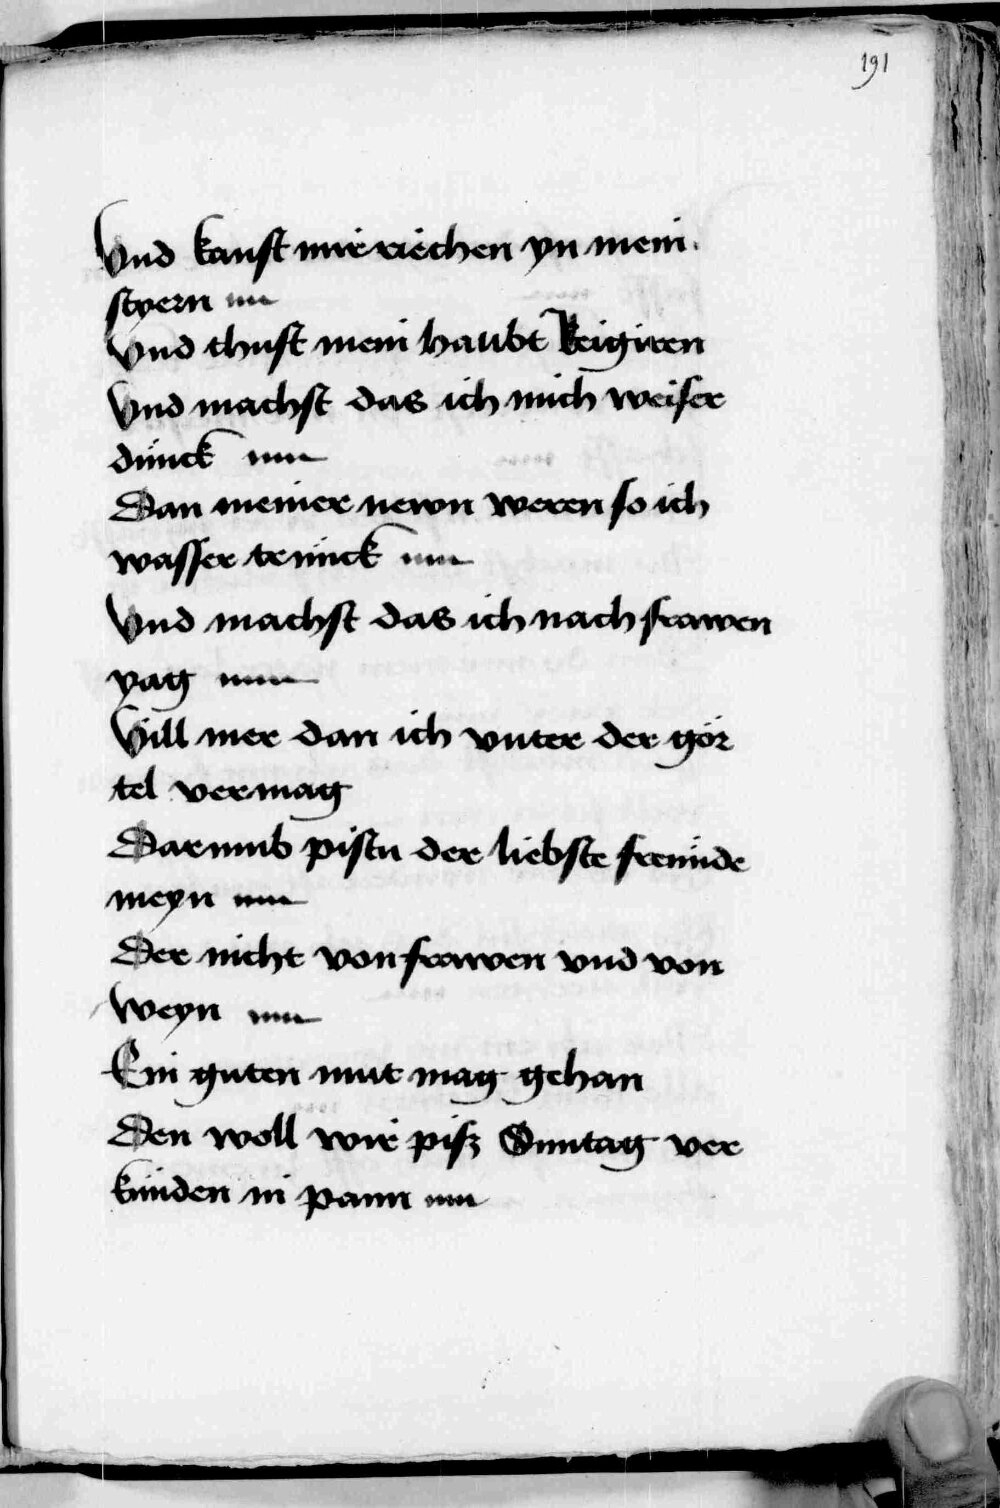 191
Vnd kanst mir riechen yn mein
styern
Vnd thust mein haubt Reigiren
Vnd machst das ich mich weiser
dünck
Dan meiner newn weren so ich
wasser trünck
Vnd machst das ich nach frawen
yag
Vill mer dan ich vnter der gör
tel vermag
Darumb pistu der liebste freünde
meyn
Der nicht von frawen vnd von
weyn
Ein guten mut mag gehan
Den woll wir pisz Suntag ver
künden in pann